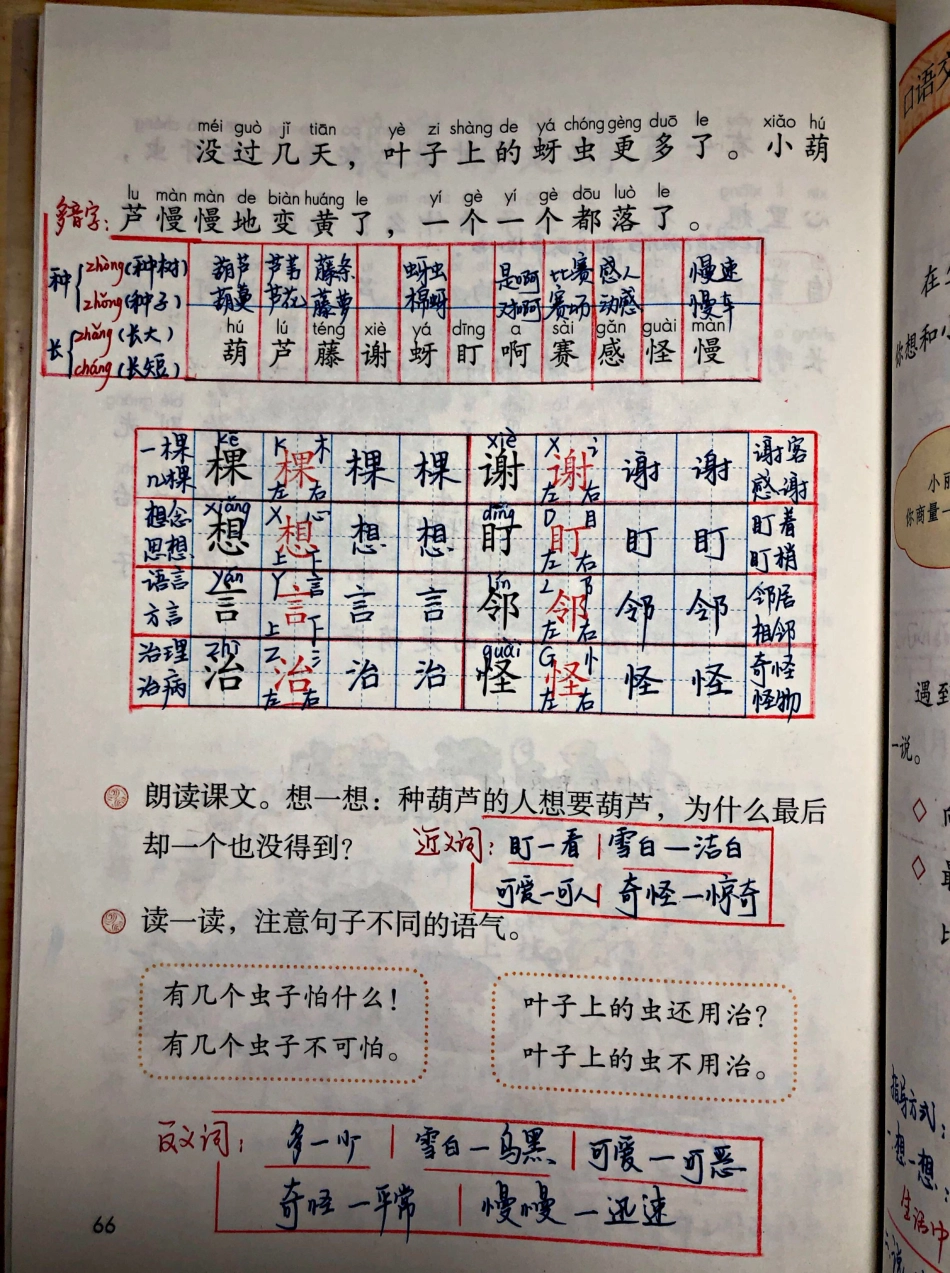 méi guò jǐ tiān yè zi shàng de yá chóng gèng duō le xiǎo hú
没过几天，叶子上的蚜虫更多了。小葫
lu màn màn de biàn huáng le yí gè yí gè dōu luò le
芦慢慢地变黄了，一个一个都落了。
多音字：
种 zhòng(种树)
zhǒng(种子)
长 zhǎng(长大)
cháng(长短)
葫芦 芦苇 藤条 蚜虫 是啊 比赛 感人 慢速
葫蔓 芦花 藤萝 棉蚜 对啊 赛场 动感 慢车
hú lú téng xiè yá dīng a sài gǎn guài màn
葫 芦 藤 谢 蚜 盯 啊 赛 感 怪 慢
一棵 kē K 木 xiè X 讠 谢客
几棵 棵 棵 左 右 棵 棵 谢 谢 左 右 谢 谢 感谢
想念 xiǎng X 心 dīng D 目 盯着
思想 想 想 上 下 想 想 盯 盯 左 右 盯 盯 盯梢
语言 yán Y 言 lín L 阝 邻居
方言 言 言 上 下 言 言 邻 邻 左 右 邻 邻 相邻
治理 zhì Z 氵 guài G 忄 奇怪
治病 治 治 左 右 治 治 怪 怪 左 右 怪 怪 怪物
朗读课文。想一想：种葫芦的人想要葫芦，为什么最后
却一个也没得到？
近义词：盯—看 雪白—洁白
可爱—可人 奇怪—惊奇
读一读，注意句子不同的语气。
有几个虫子怕什么！
有几个虫子不可怕。
叶子上的虫还用治？
叶子上的虫不用治。
反义词：多—少 雪白—乌黑 可爱—可恶
奇怪—平常 慢慢—迅速
66
口语交
在
你想和小
小丽
你商量一
遇到
一说。
向
最
比
指导方式：
想一想：
生活中